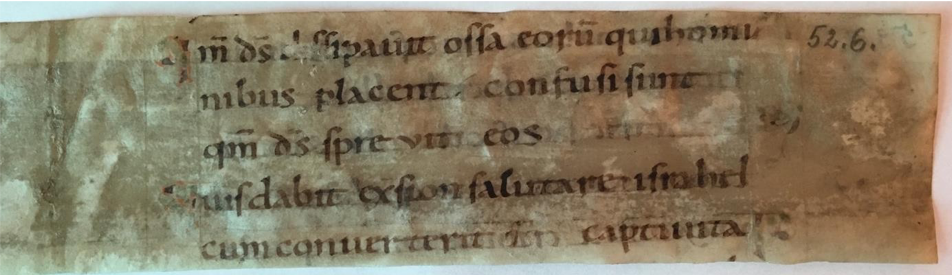 Qm̄ ds̄ dissipauit ossa eorū qui homi 52.6.
nibus placent confusi sunt
qm̄ ds̄ spreuit eos
Quis dabit exsion salutare israhel
cum conuerterit dn̄s captiuita